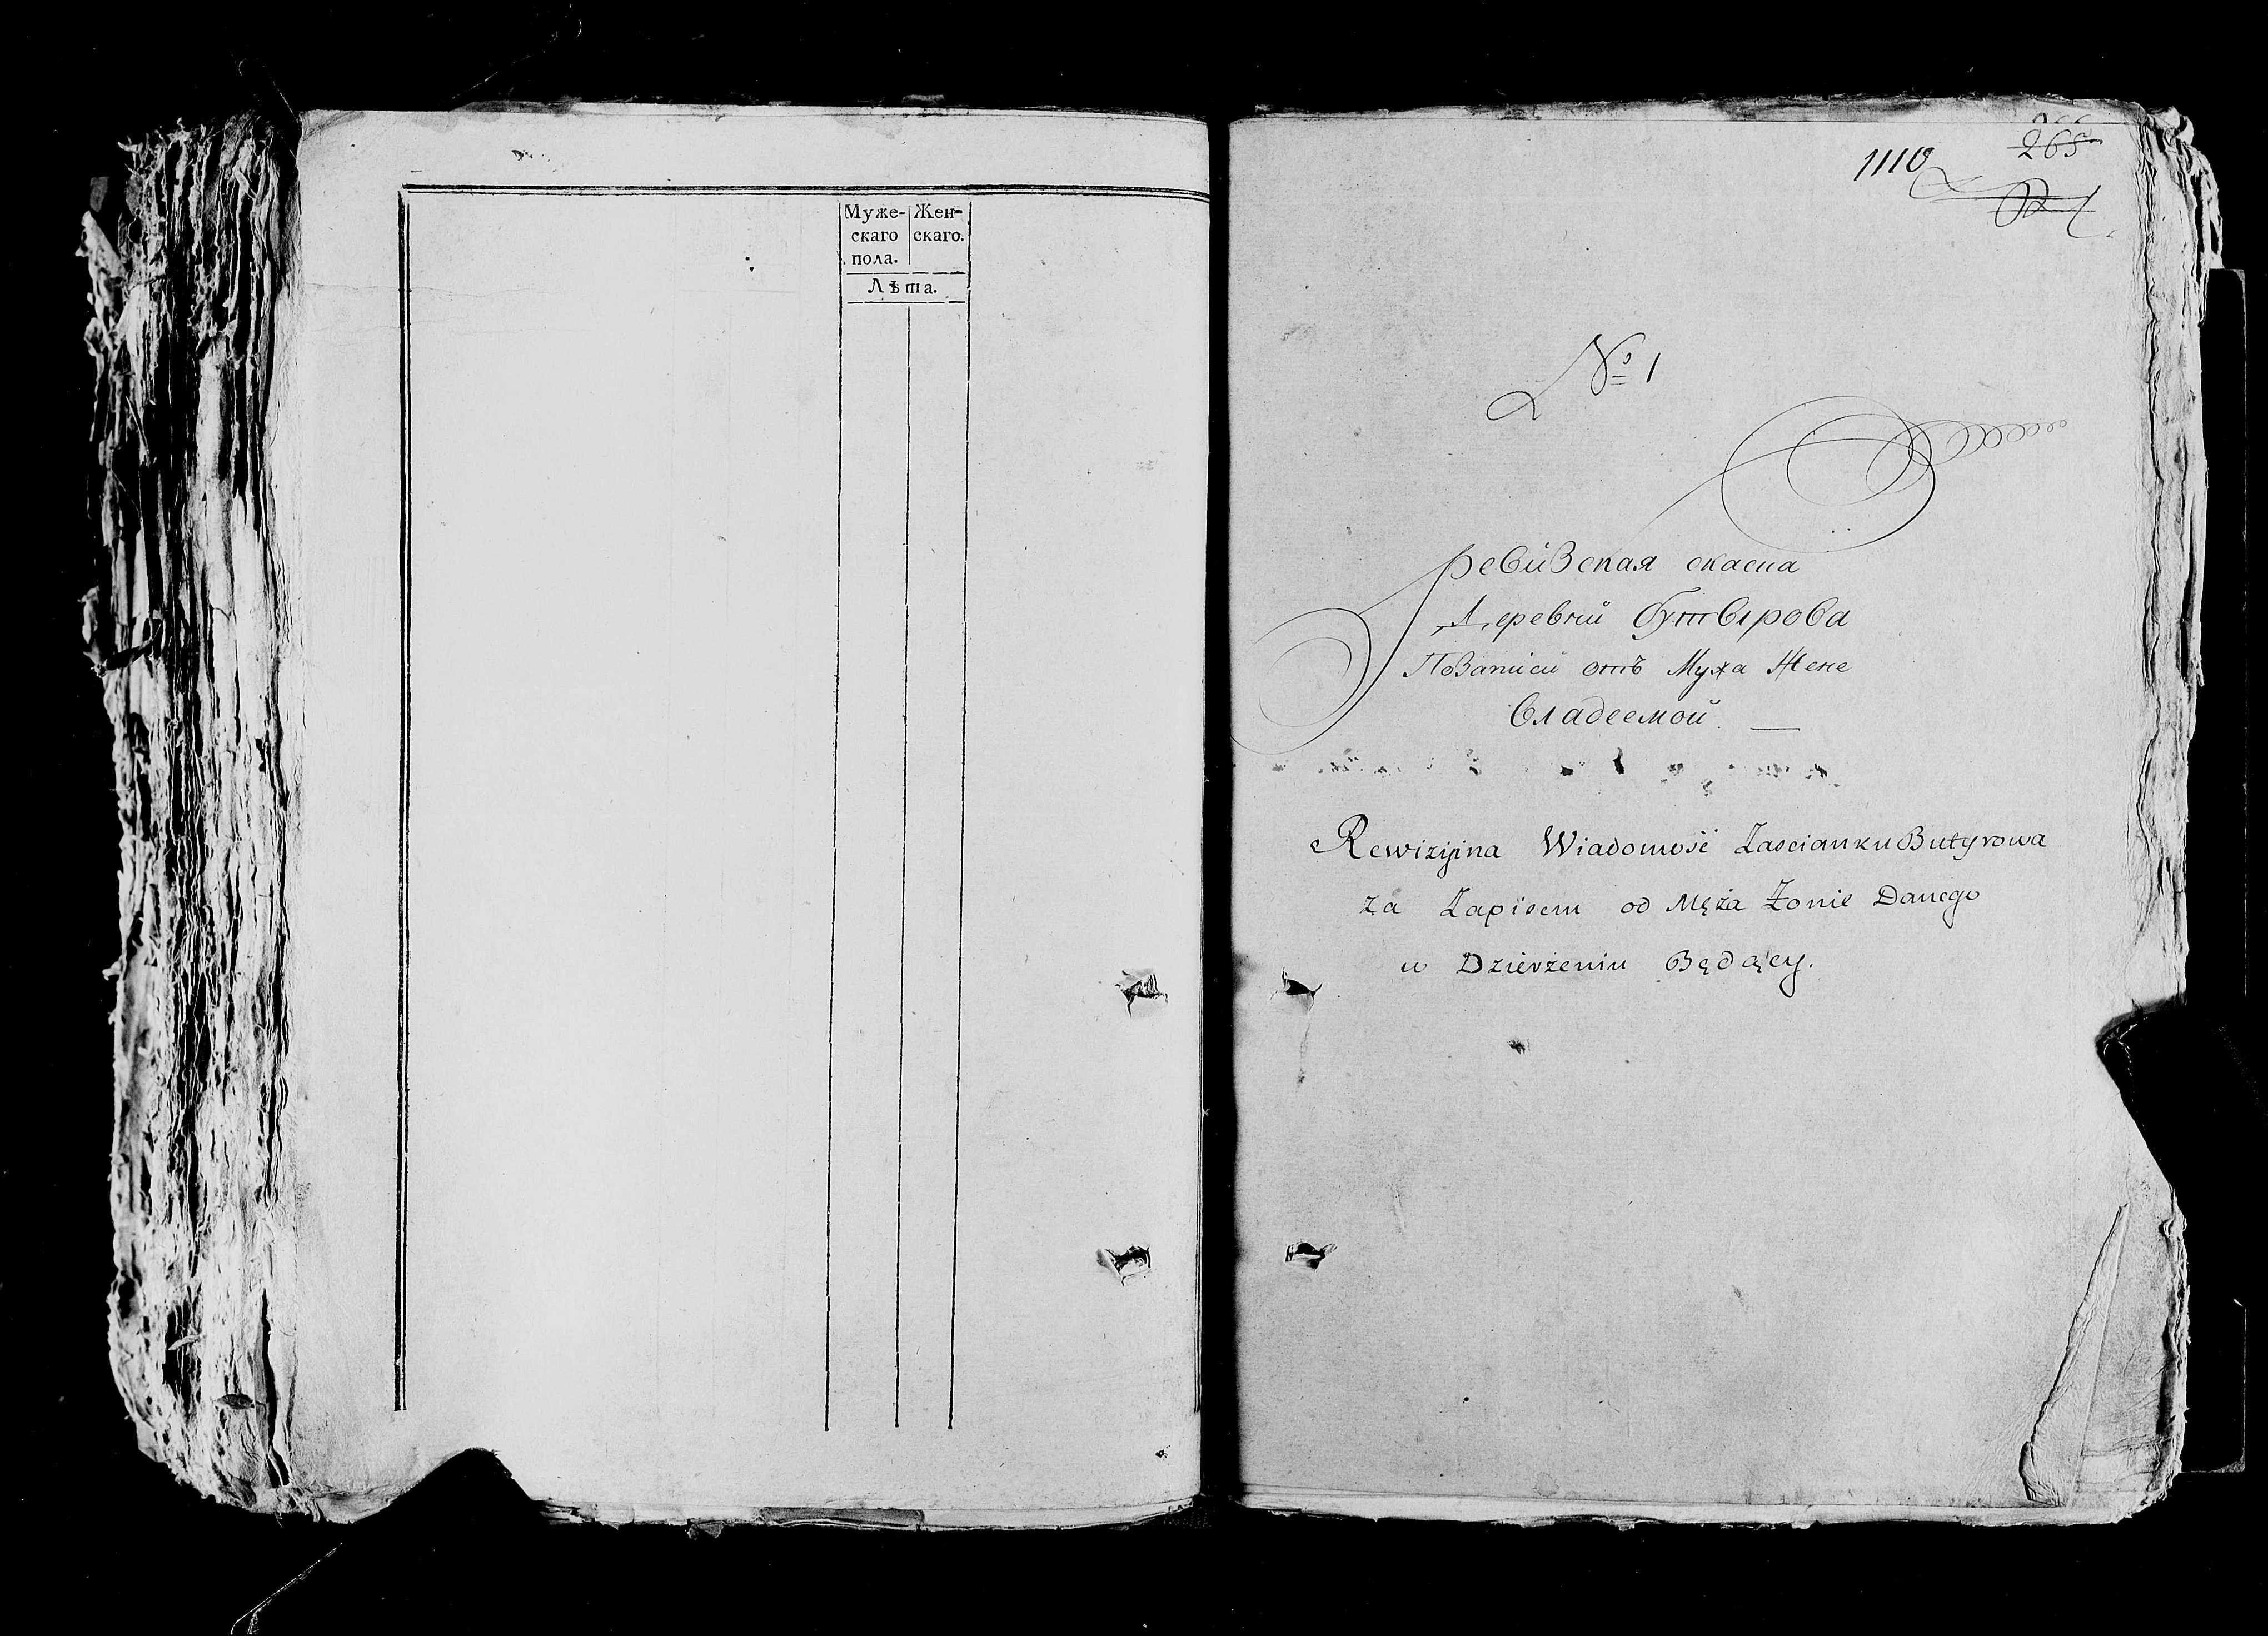 Муже- Жен-
скаго скаго.
пола.
Лѣта.
1110
265
№ 1
ревизская скаска
Деревни бутырова
Поваписи отъ Мужа Жене
владеемой.
Rewizyina Wiadomość Zascianku Butyrowa
za Zapisem od Męża Żonie Danego
w Dzierżeniu Będący.